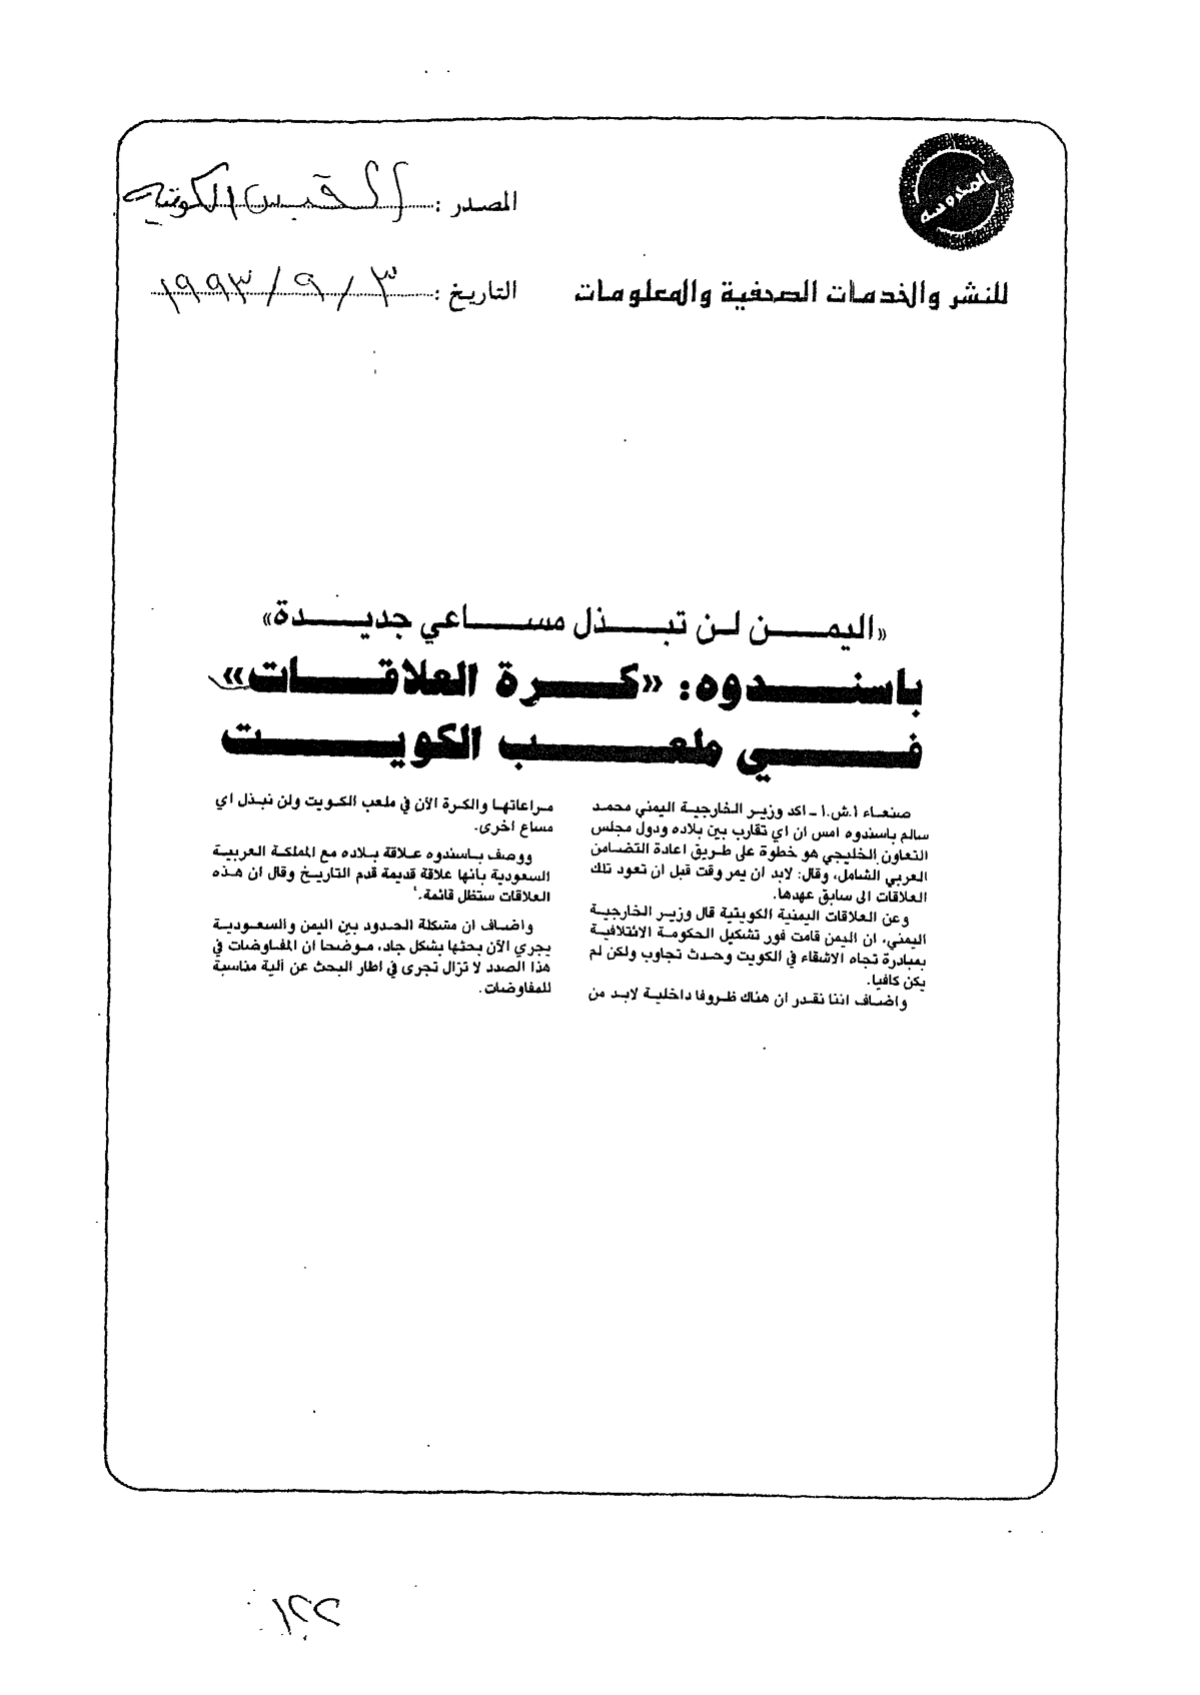 المدروسه
المصدر : القبس الكويتيه
للنشر والخدمات الصحفية والمعلومات
التاريخ : ٣ / ٩ / ١٩٩٣
«اليمن لن تبذل مساعي جديدة»
باسندوه: «كرة العلاقات»
في ملعب الكويت
صنعاء أ.ش.ا - اكد وزير الخارجية اليمني محمد
سالم باسندوه امس ان اي تقارب بين بلاده ودول مجلس
التعاون الخليجي هو خطوة على طريق اعادة التضامن
العربي الشامل، وقال: لابد ان يمر وقت قبل ان تعود تلك
العلاقات الى سابق عهدها.
وعن العلاقات اليمنية الكويتية قال وزير الخارجية
اليمني، ان اليمن قامت فور تشكيل الحكومة الائتلافية
بمبادرة تجاه الاشقاء في الكويت وحدث تجاوب ولكن لم
يكن كافيا.
واضاف اننا نقدر ان هناك ظروفا داخلية لابد من
مراعاتها والكرة الآن في ملعب الكويت ولن نبذل اي
مساع اخرى.
ووصف باسندوه علاقة بلاده مع المملكة العربية
السعودية بانها علاقة قديمة قدم التاريخ وقال ان هذه
العلاقات ستظل قائمة.
واضاف ان مشكلة الحدود بين اليمن والسعودية
يجري الآن بحثها بشكل جاد، موضحا ان المفاوضات في
هذا الصدد لا تزال تجرى في اطار البحث عن آلية مناسبة
للمفاوضات.
١٢٢